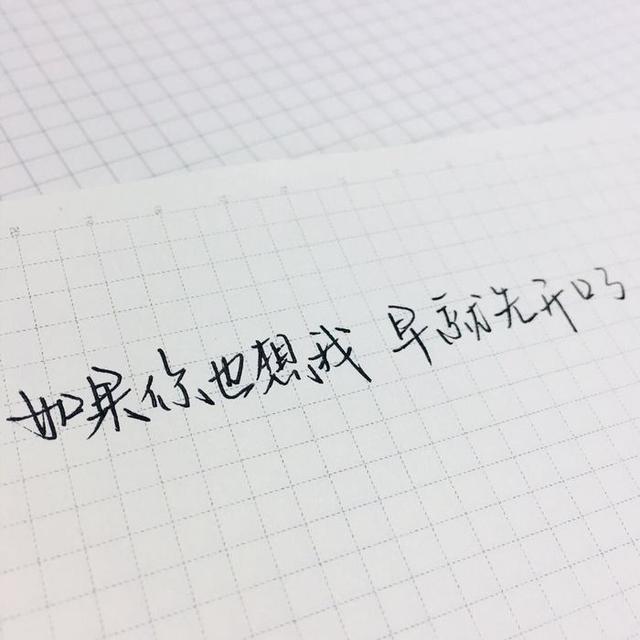 如果你也想我 早就先开口了